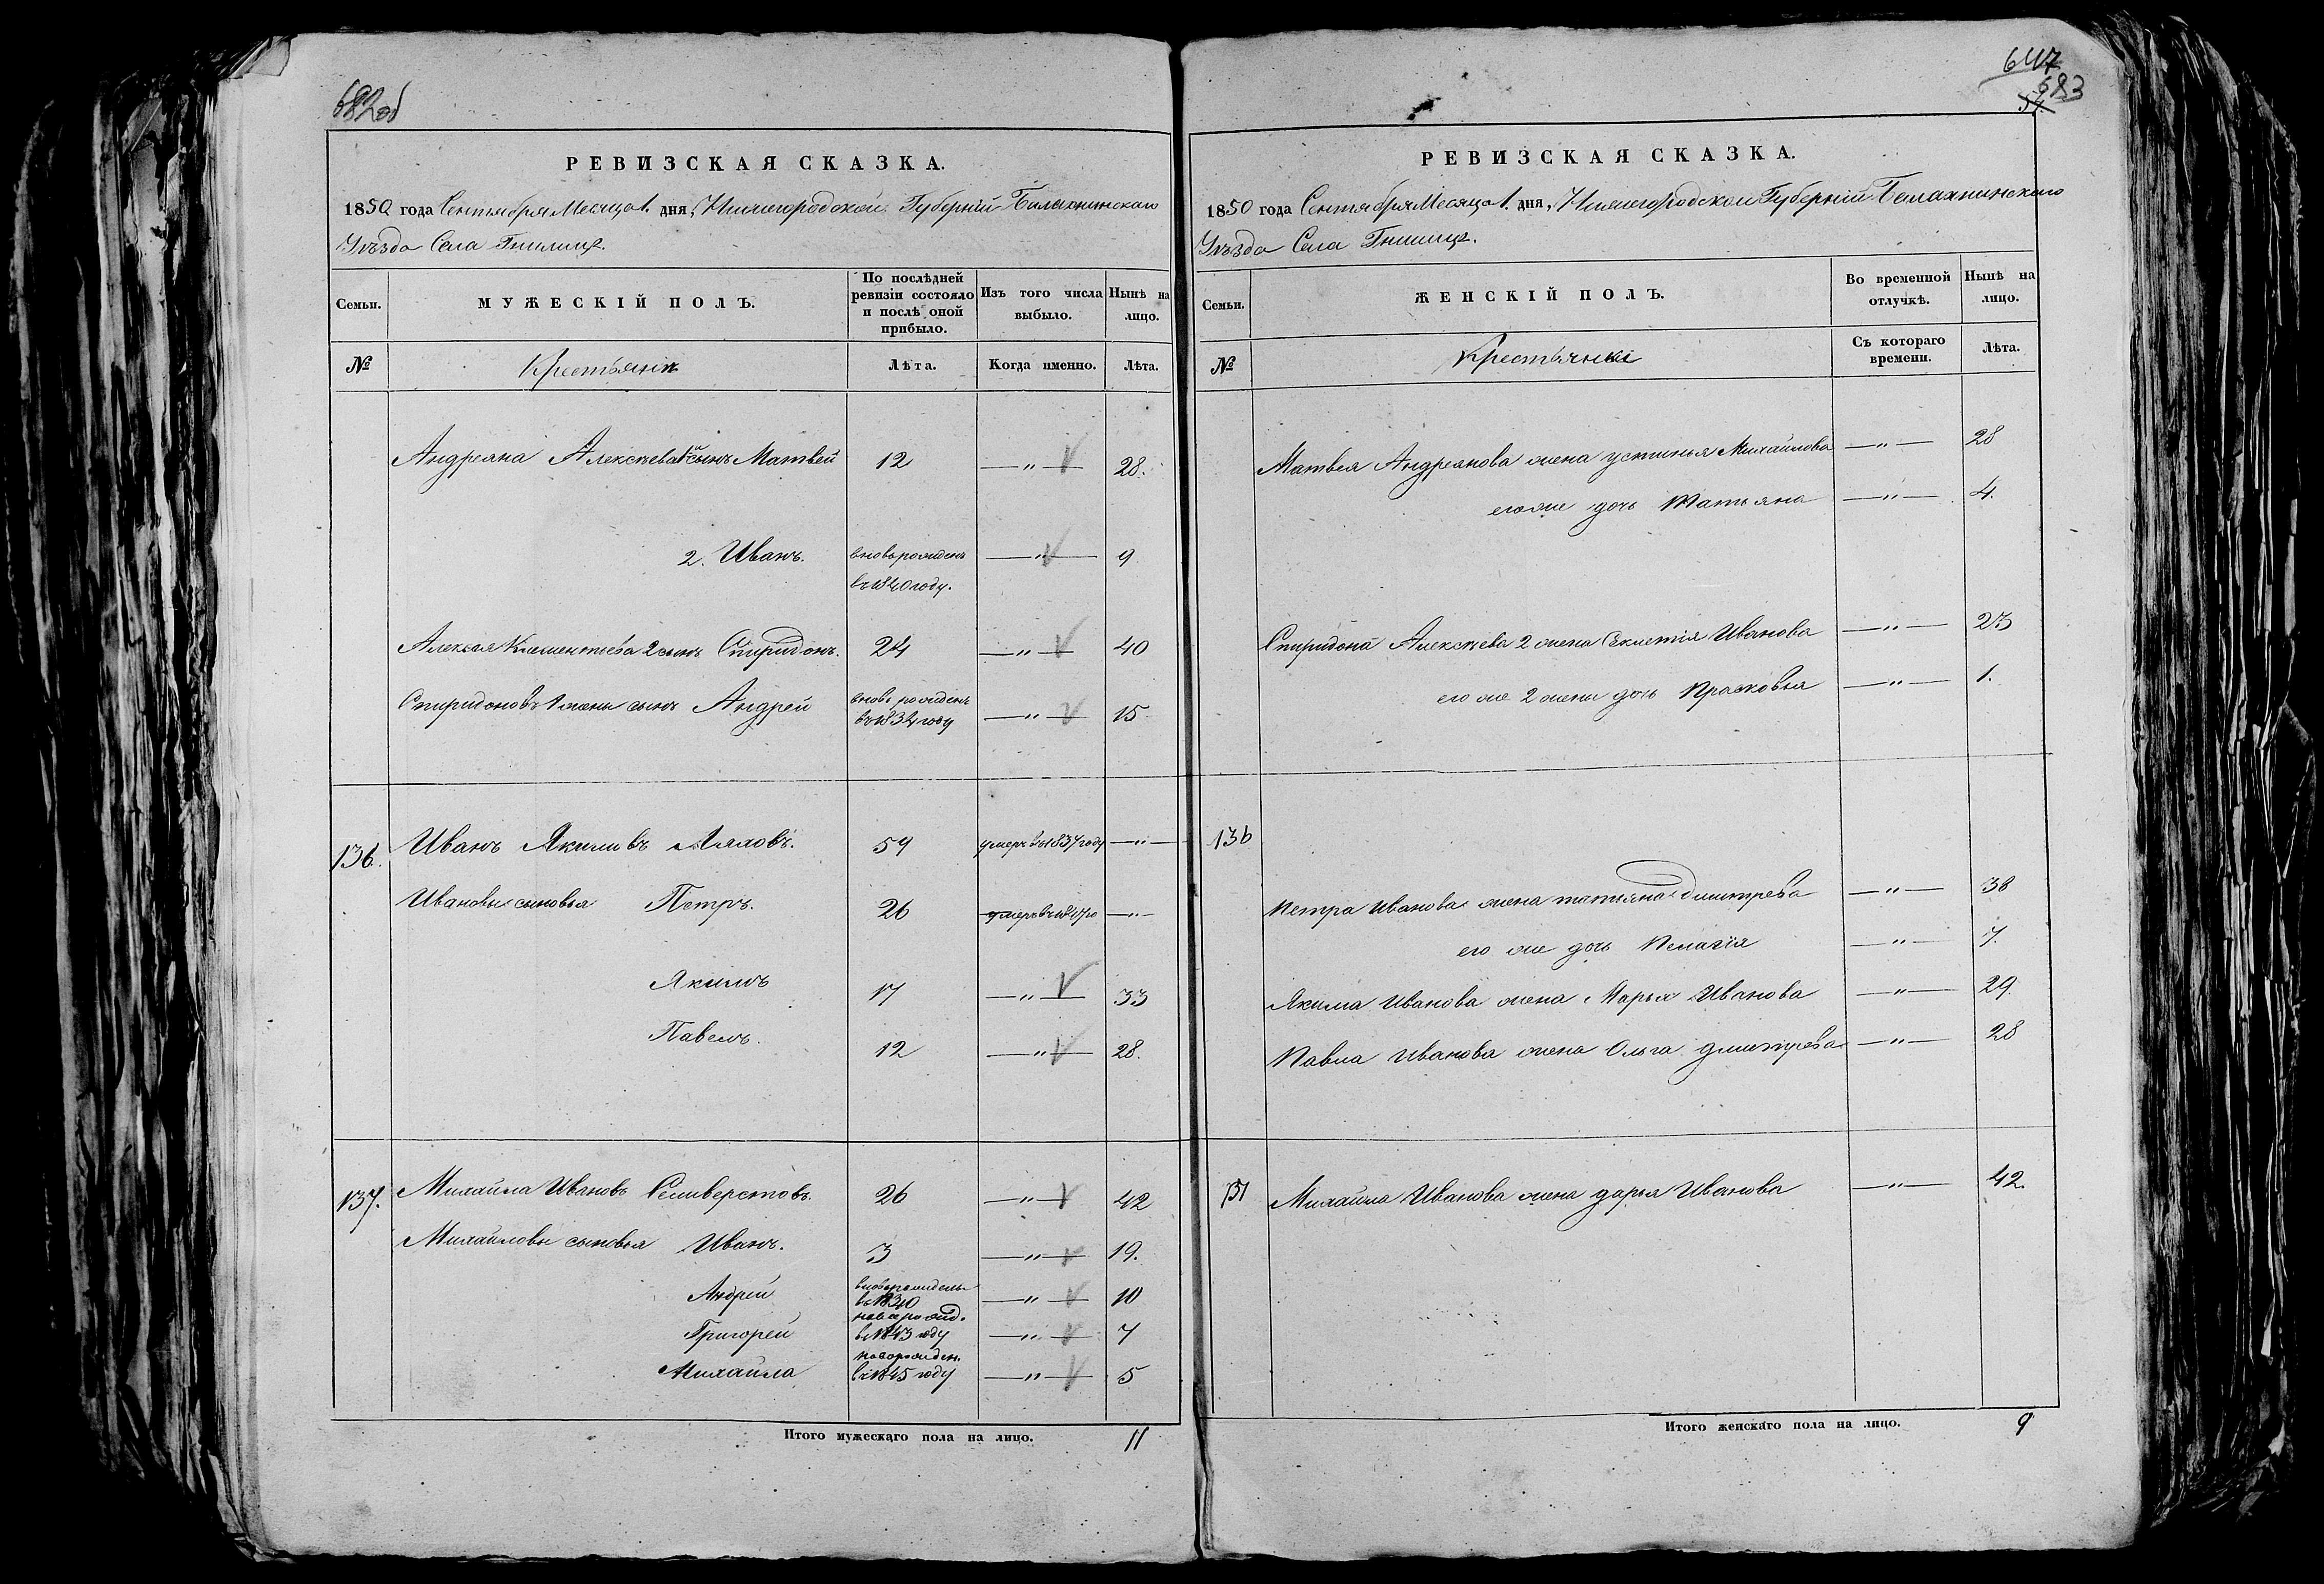 682об
РЕВИЗСКАЯ СКАЗКА.
1850 года Сентября Месяца 1. дня, Нижегородской Губерніи Балахнинскаго
Уѣзда Села Гнилицъ.
Семьи.
МУЖЕСКІЙ ПОЛЪ.
По послѣдней ревизіи состояло и послѣ оной прибыло.
Изъ того числа выбыло.
Нынѣ на лицо.
№
Крестьянъ
Лѣта.
Когда именно.
Лѣта.
Андреяна Алексѣева 1й сынъ Матвей 12 —"— 28.
2. Иванъ. вновьрожденъ —"— 9
въ 1840 году.
Алексея Клементьева 2 сынъ Спиридонъ. 24 —"— 40
Спиридоновъ 1 жены сынъ Андрей вновь рожденъ —"— 15
въ 1834 году
136. Иванъ Якимовъ Ляловъ. 59 умеръ въ 1837 году —"—
Ивановы сыновья Петръ. 26 умеръ въ 1847 го —"—
Якимъ 17 —"— 33
Павелъ. 12 —"— 28.
137. Михайла Ивановъ Селиверстовъ. 26 —"— 42
Михайловы сыновья Иванъ. 3 —"— 19.
Андрей вновьрожденъ —"— 10
въ 1840
Григорей новорожд. —"— 7
въ 1843 году
Михайла новорожден. —"— 5
въ 1845 году
Итого мужескаго пола на лицо. 11
647
683
54.
РЕВИЗСКАЯ СКАЗКА.
1850 года Сентября Месяца 1. дня, Нижегородской Губерніи Балахнинскаго
Уѣзда Села Гнилицъ.
Семьи.
ЖЕНСКІЙ ПОЛЪ.
Во временной отлучкѣ.
Нынѣ на лицо.
№
Крестьянки
Съ котораго времени.
Лѣта.
Матвея Андреянова жена устинья Михайлова —"— 28
егоже дочь Татьяна —"— 4.
Спиридона Алексѣева 2 жена Секлетія Иванова —"— 23
его же 2 жены дочь Прасковья —"— 1.
136
Петра Иванова жена татьяна дмитрева —"— 38
его же дочь Пелагія —"— 7.
Якима Иванова жена Марья Иванова —"— 29.
Павла Иванова жена Ольга дмитрева —"— 28
137 Михайла Иванова жена дарья Иванова —"— 42.
Итого женскаго пола на лицо. 9